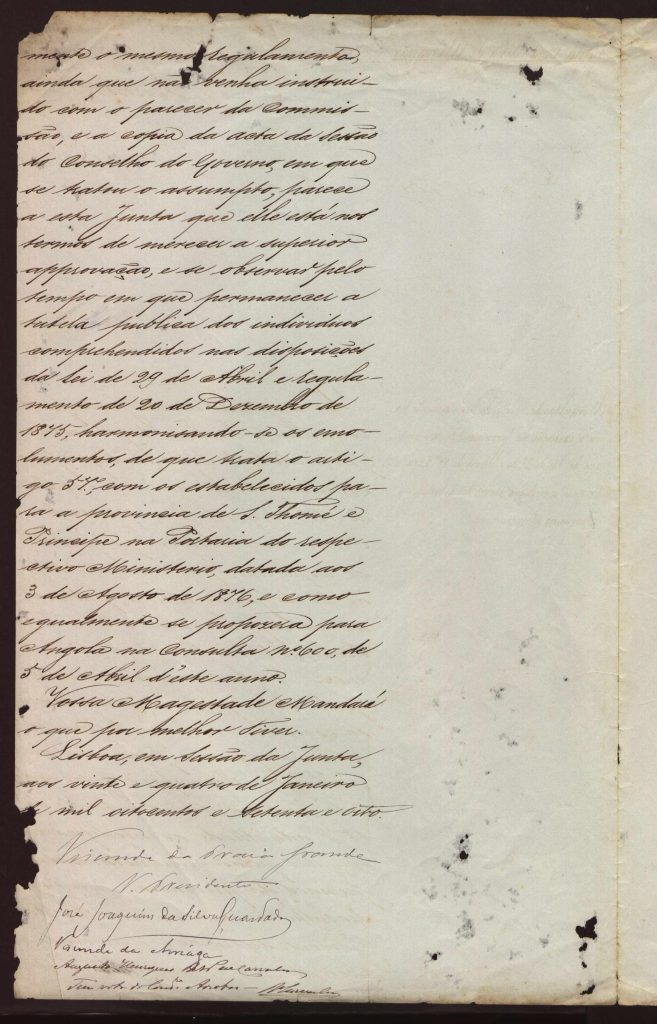 mente o mesmo regulamento,
ainda que não venha instrui-
do com o parecer da Commis-
são, e a copia da acta da Sessão
do Conselho do Governo, em que
se tratou o assumpto, parece
a esta Junta que elle está nos
termos de merecer a superior
approvação, e se observar pelo
tempo em que permanecer a
tutela publica dos individuos
comprehendidos nas disposições
da lei de 29 de Abril e regula-
mento de 20 de Dezembro de
1875, harmonisando-se os emo-
lumentos, de que trata o arti-
go 57º, com os estabelecidos pa-
ra a provincia de S. Thomé e
Principe na Portaria do respe-
ctivo Ministerio, datada aos
3 de Agosto de 1876, e como
egualmente se propozera para
Angola na Consulta nº 600, de
5 de Abril d'este anno.
Vossa Magestade Mandará
o que por melhor Tiver.
Lisboa, em Sessão da Junta,
aos vinte e quatro de Janeiro
de mil oitocentos e setenta e oito.
Visconde da Praia Grande
V. Presidente
José Joaquim da Silva Guardado
Visconde da Arriaga
Augusto Henriques
Tem voto do Cons.ro